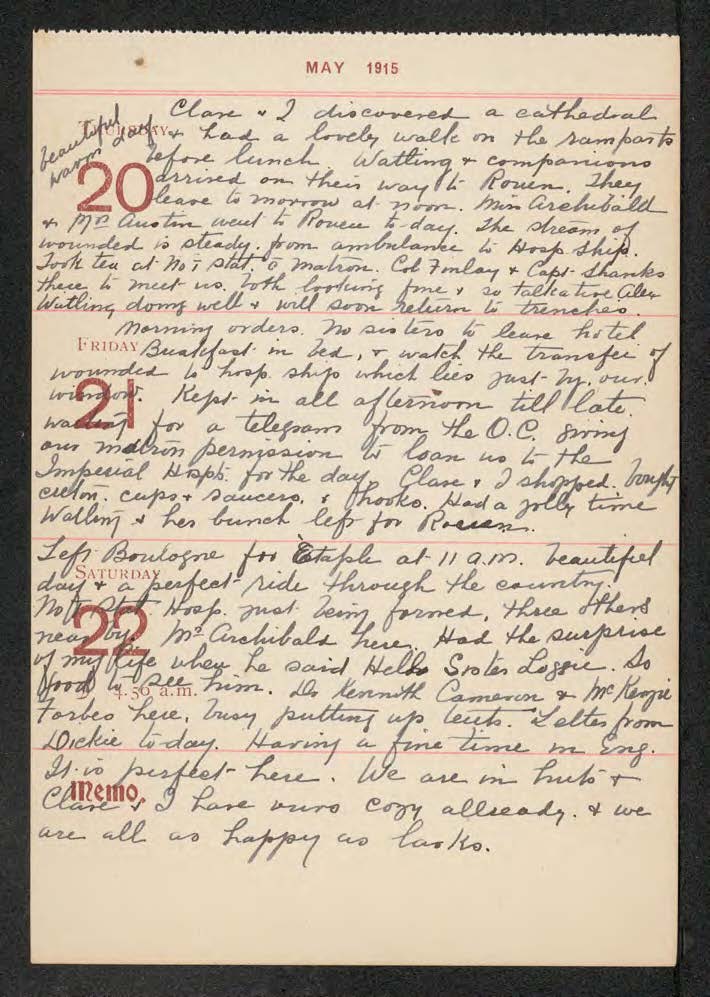 MAY 1915
Clare & I discovered a cathedral
beautiful warm day
THURSDAY
& had a lovely walk on the ramparts
before lunch. Watling & companions
20
arrived on their way to Rouen. They
leave to morrow at noon. Miss Archibald
& Mrs Austin went to Rouen to-day. The stream of
wounded is steady. from ambulance to Hosp Ship.
Took tea at No 1 Stat. & matron. Col Finlay & Capt Shanks
there to meet us. both looking fine & so talkative Alex
Watling doing well & will soon return to trenches.
Morning orders. No sisters to leave hotel
FRIDAY
Breakfast in bed, & watch the transfer of
wounded to hosp ship which lies just by, our
21
window. Kept in all afternoon till late.
waiting for a telegram from the O.C. giving
our matron permission to loan us to the
Imperial Hospts. for the day Clare & I shopped. bought
creton. cups & saucers, & hooks. Had a jolly time
Watling & her bunch left for Rouen.
Left Boulogne for Etaple at 11 a.m. beautiful
SATURDAY
day & a perfect ride through the country.
No 1 Stat Hosp. just being formed, three others
22
near by. Mr Archibald here. Had the surprise
of my life when he said Hello Sister Loggie. So
good to see him. Dr Kenneth Cameron & McKenzie
4.56 a.m.
Forbes here, busy putting up tents. Letter from
Dickie to-day. Having a fine time in Eng.
It is perfect here. We are in huts &
Memo.
Clare & I have ours cozy allready. & we
are all as happy as larks.